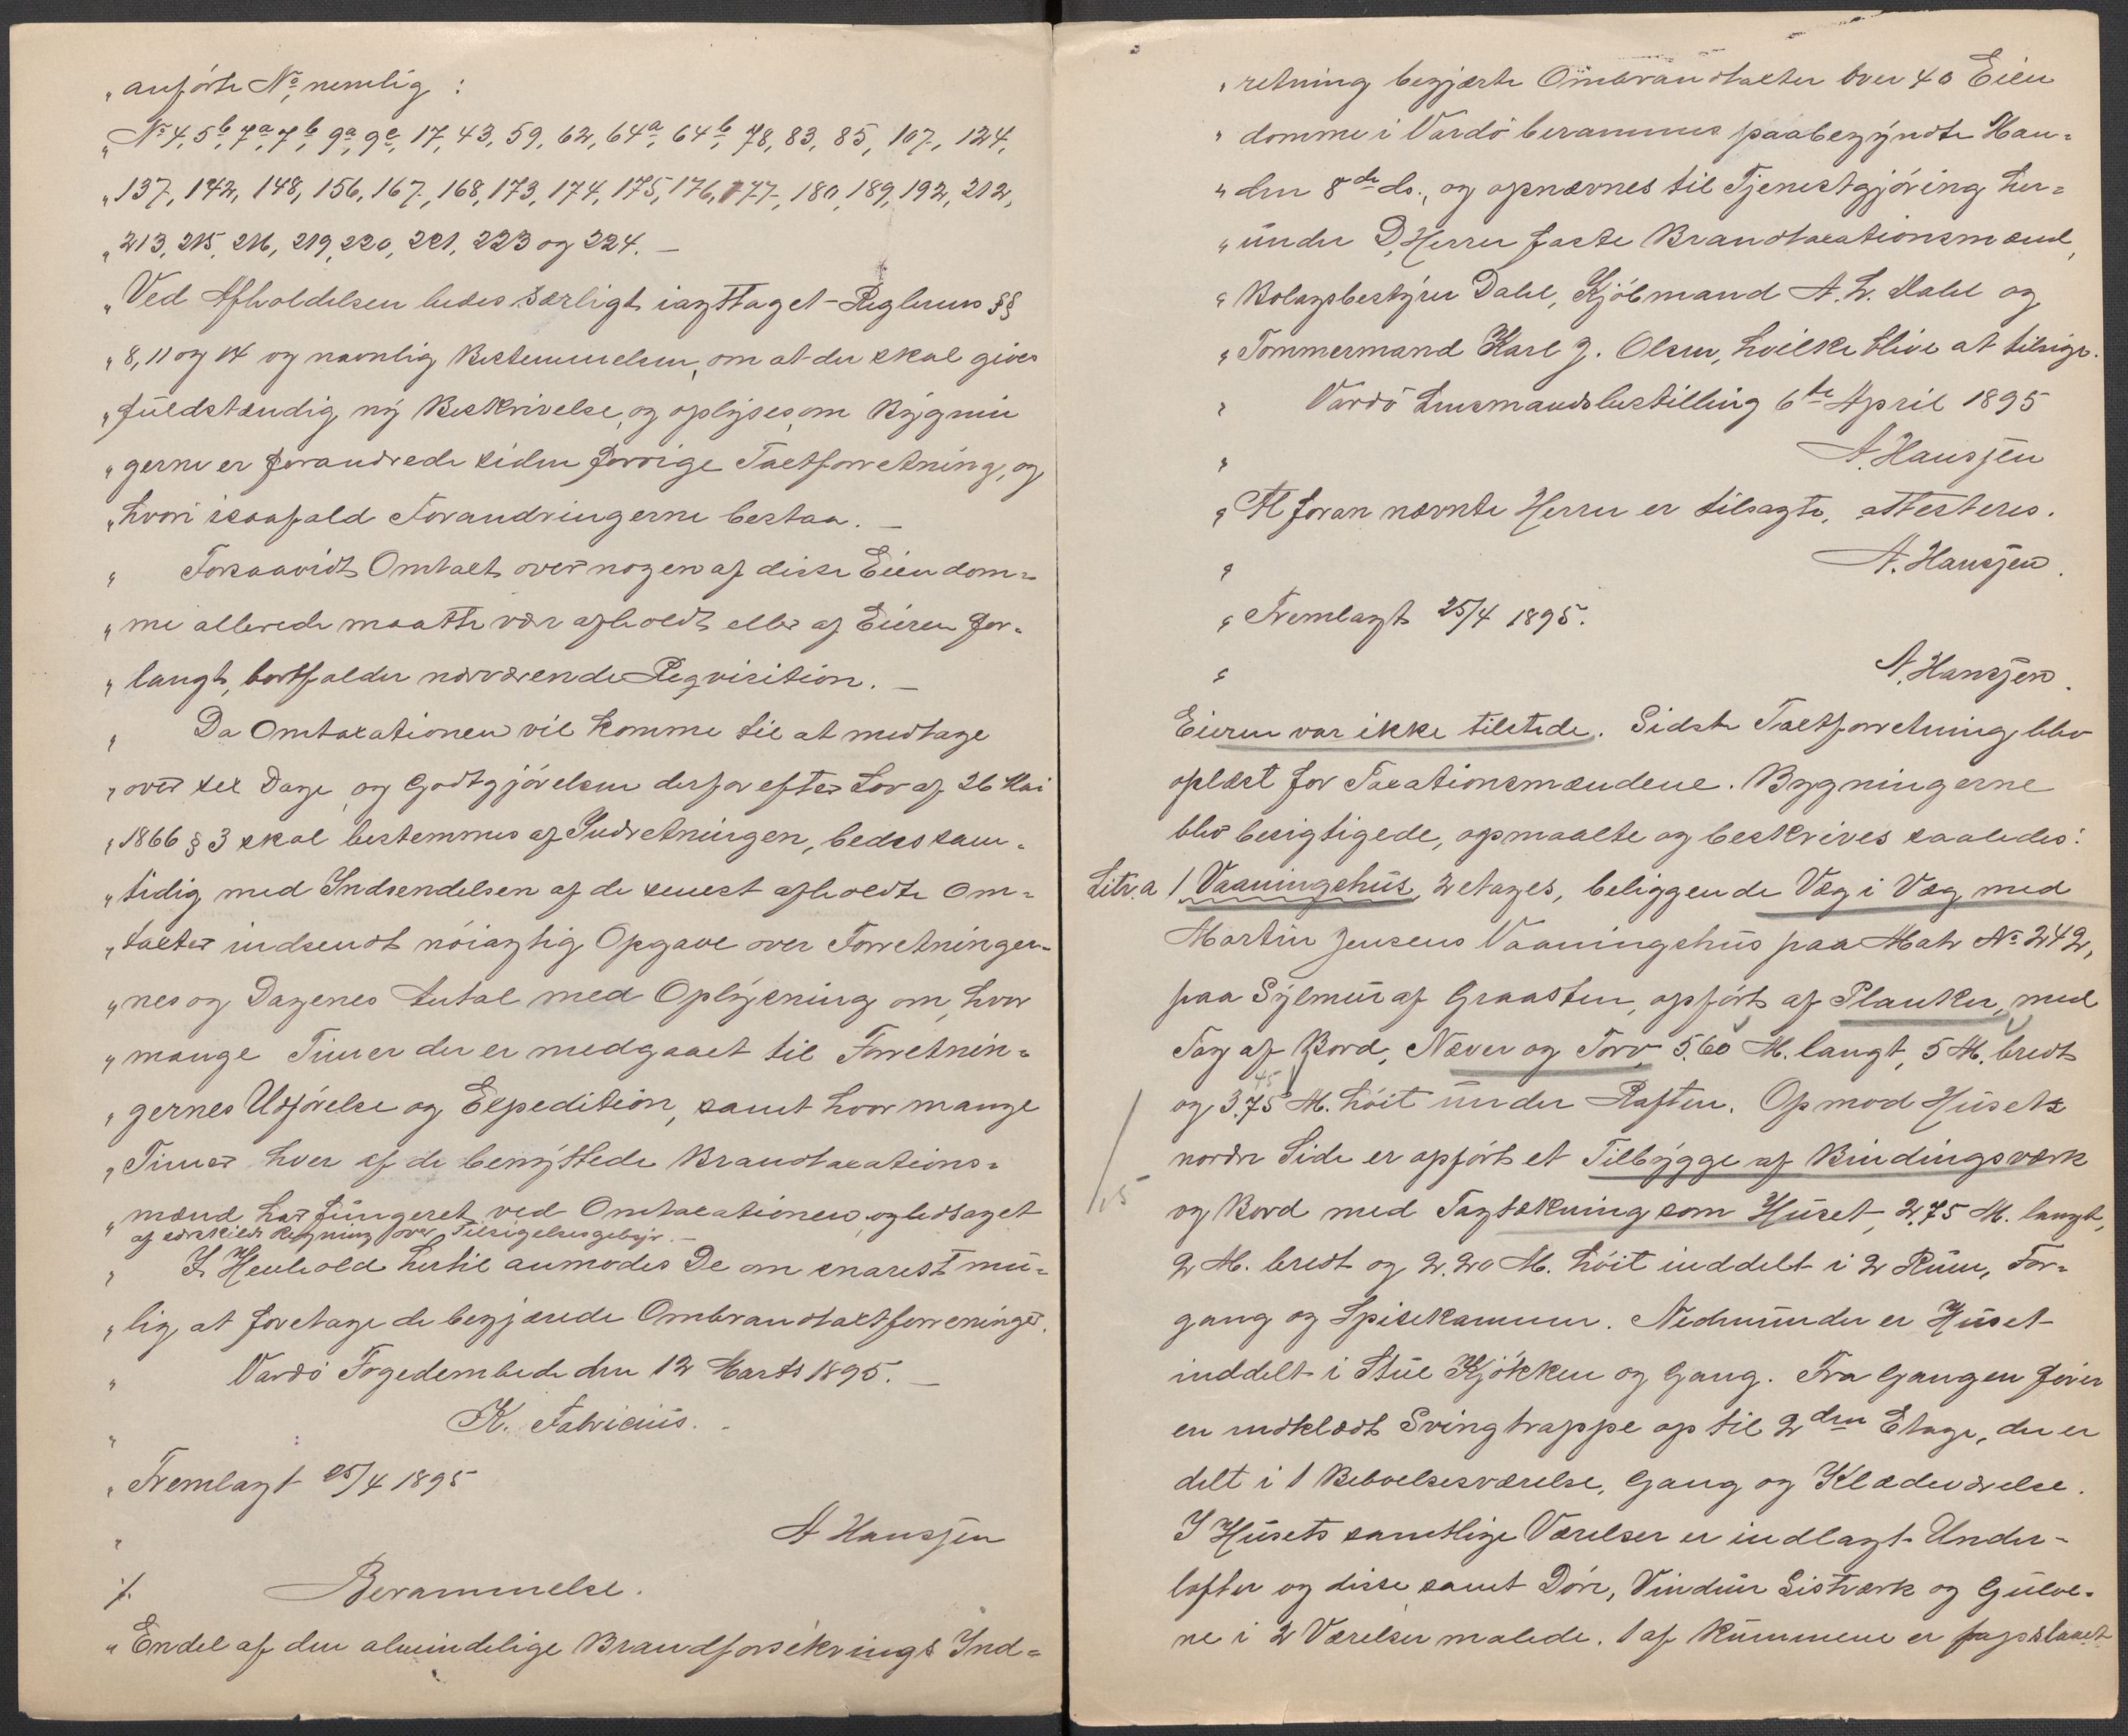 „anførte No, nemlig:
„No 4, 5b, 7a, 7b, 9a, 9c, 17, 43, 59, 62, 64a, 64b, 78, 83, 85, 107, 124,
„137, 142, 148, 156, 167, 168, 173, 174, 175, 176, 177, 180, 189, 192, 212,
„213, 215, 216, 219, 220, 221, 223 og 224. —
„Ved Afholdelsen bedes særligt iagttaget Reglernes §§
„8, 11 og 14 og navnlig Bestemmelsen, om at der skal gives
„fuldstændig ny Beskrivelse, og oplyses, om Bygnin
„gerne er forandrede siden forrige Taxtforretning, og
„hvori isaafald Forandringerne bestaa. —
„ Forsaavidt Omtaxt over nogen af disse Eiendom-
„me allerede maatte være afholdt eller af Eieren for-
„langt, bortfalder nærværende Reqvisition. —
„ Da Omtaxationen vil komme til at medtage
„over sex Dage, og Godtgjørelsen derfor efter Lov af 26 Mai
„1866 § 3 skal bestemmes af Indretningen, bedes sam-
„tidig med Indsendelsen af de senest afholdte Om-
„taxter indsendt nøiagtig Opgave over Forretninger-
„nes og Dagenes Antal med Oplysning om, hvor
„mange Timer der er medgaaet til Forretnin-
„gernes Udførelse og Expedition, samt hvor mange
„Timer hver af de benyttede Brandtaxations-
„mænd har fungeret ved Omtaxationen, ogledsaget
af særskildt Regning over Tilsigelsesgebyr. —
„ I Henhold hertil anmodes De om snarest mu-
„lig, at foretage de begjærede Ombrandtaxtforreninger.
„ Vardø Fogedembede den 12 Marts 1895. —
„ K. Fabricius.
„Fremlagt 25/4 1895
„ A Hansjen
„/. Berammelse.
„Endel af den almindelige Brandforsikrings Ind-
„retning begjærte Ombrandtaxter over 40 Eien
„domme i Vardø berammes paabegyndte Man-
„den 8de ds., og opnævnes til Tjenestgjøring her-
„under D'Herrer faste Brandtaxationsmænd,
„Bolagsbestyrer Dahl, Kjøbmand A. L. Dahl og
„Tømmermand Karl J. Olsen, hvilke blive at tilsige.
„ Vardø Lensmandsbestilling 6te April 1895
„ A. Hansjen
„At foran nævnte Herrer er tilsagte, attesteres.
„ A. Hansjen.
„Fremlagt 25/4 1895.
„ A. Hansjen.
Eieren var ikke tilstede. Sidste Taxtforretning blev
oplæst for Taxationsmændene. Bygningerne
blev besigtigede, opmaalte og beskrives saaledes:
Litr. a 1 Vaaningshus, 2 etages, beliggende Væg i Væg med
Martin Jensens Vaaningshus paa Matr No 242,
paa Sylmur af Graasten, opført af Planker, med
Tag af Bord, Næver og Torv, 5.60 M. langt, 5 M. bredt
45
og 3.75 M. høit under Raften. Op mod Husets
nordre Side er opført et Tilbygge af Bindingsværk
1,5
og Bord med Tagtækning som Huset, 2.75 M. langt,
2 M. bredt og 2.20 M. høit inddelt i 2 Rum, For-
gang og Spisekammer. Nedenunder er Huset
inddelt i Stue Kjøkken og Gang. Fra Gangen fører
en indklædt Svingtrappe op til 2den Etage, der er
delt i 1 Beboelsesværelse, Gang og Klædeværelse.
I Husets samtlige Værelser er indlagt Under-
lofter og disse samt Døre, Vinduer Listværk og Gulve-
ne i 2 Værelser malede. 1 af Rummene er papslaaet